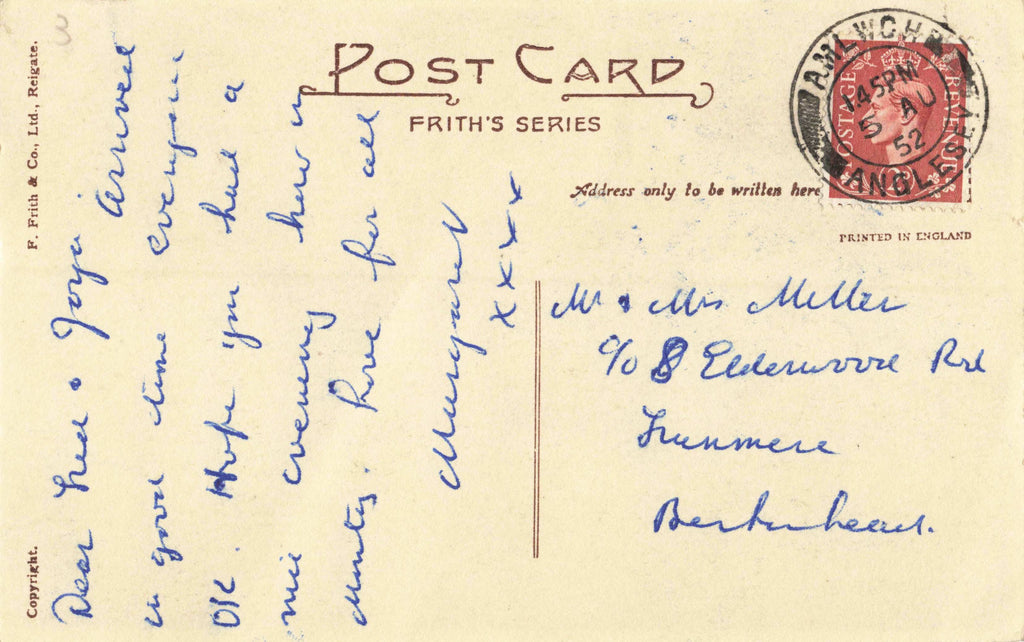 POST CARD
FRITH'S SERIES
Address only to be written here
PRINTED IN ENGLAND
F. Frith & Co., Ltd., Reigate.
Copyright.
AMLWCH
1 45 PM
5 AU
52
ANGLESEY
POSTAGE REVENUE
Dear Fred & Joyce Arrived
in good time everyone
OK. Hope you had a
nice evening how is
Monty. love for all
Margaret
x x x x
Mr & Mrs Miller
c/o 8 Elderwood Rd
Trunmere
Berkinhead.